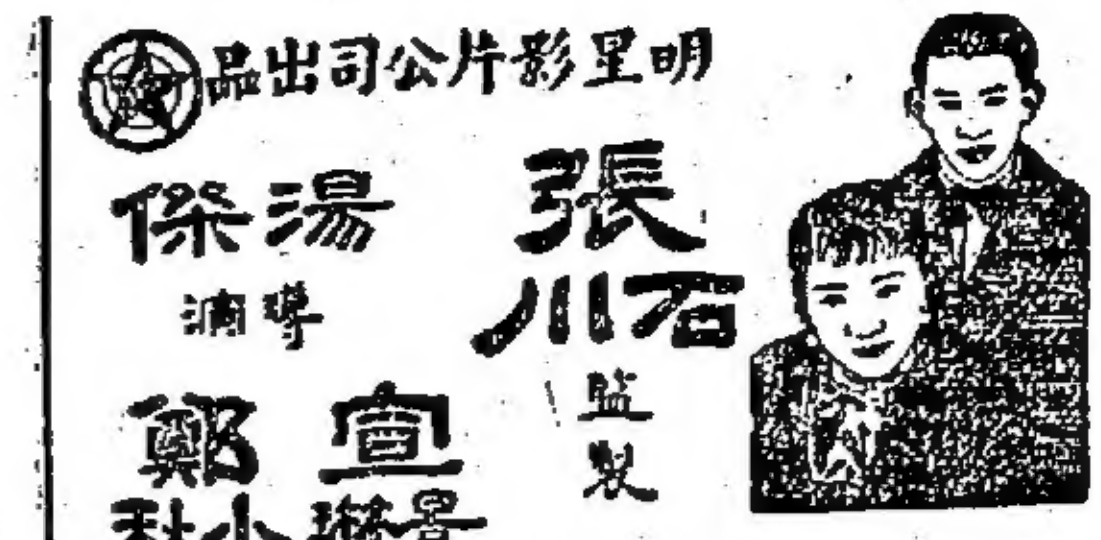 明星影片公司出品
張
石川
監
製
湯傑
導演
宣
景琳
鄭
小秋